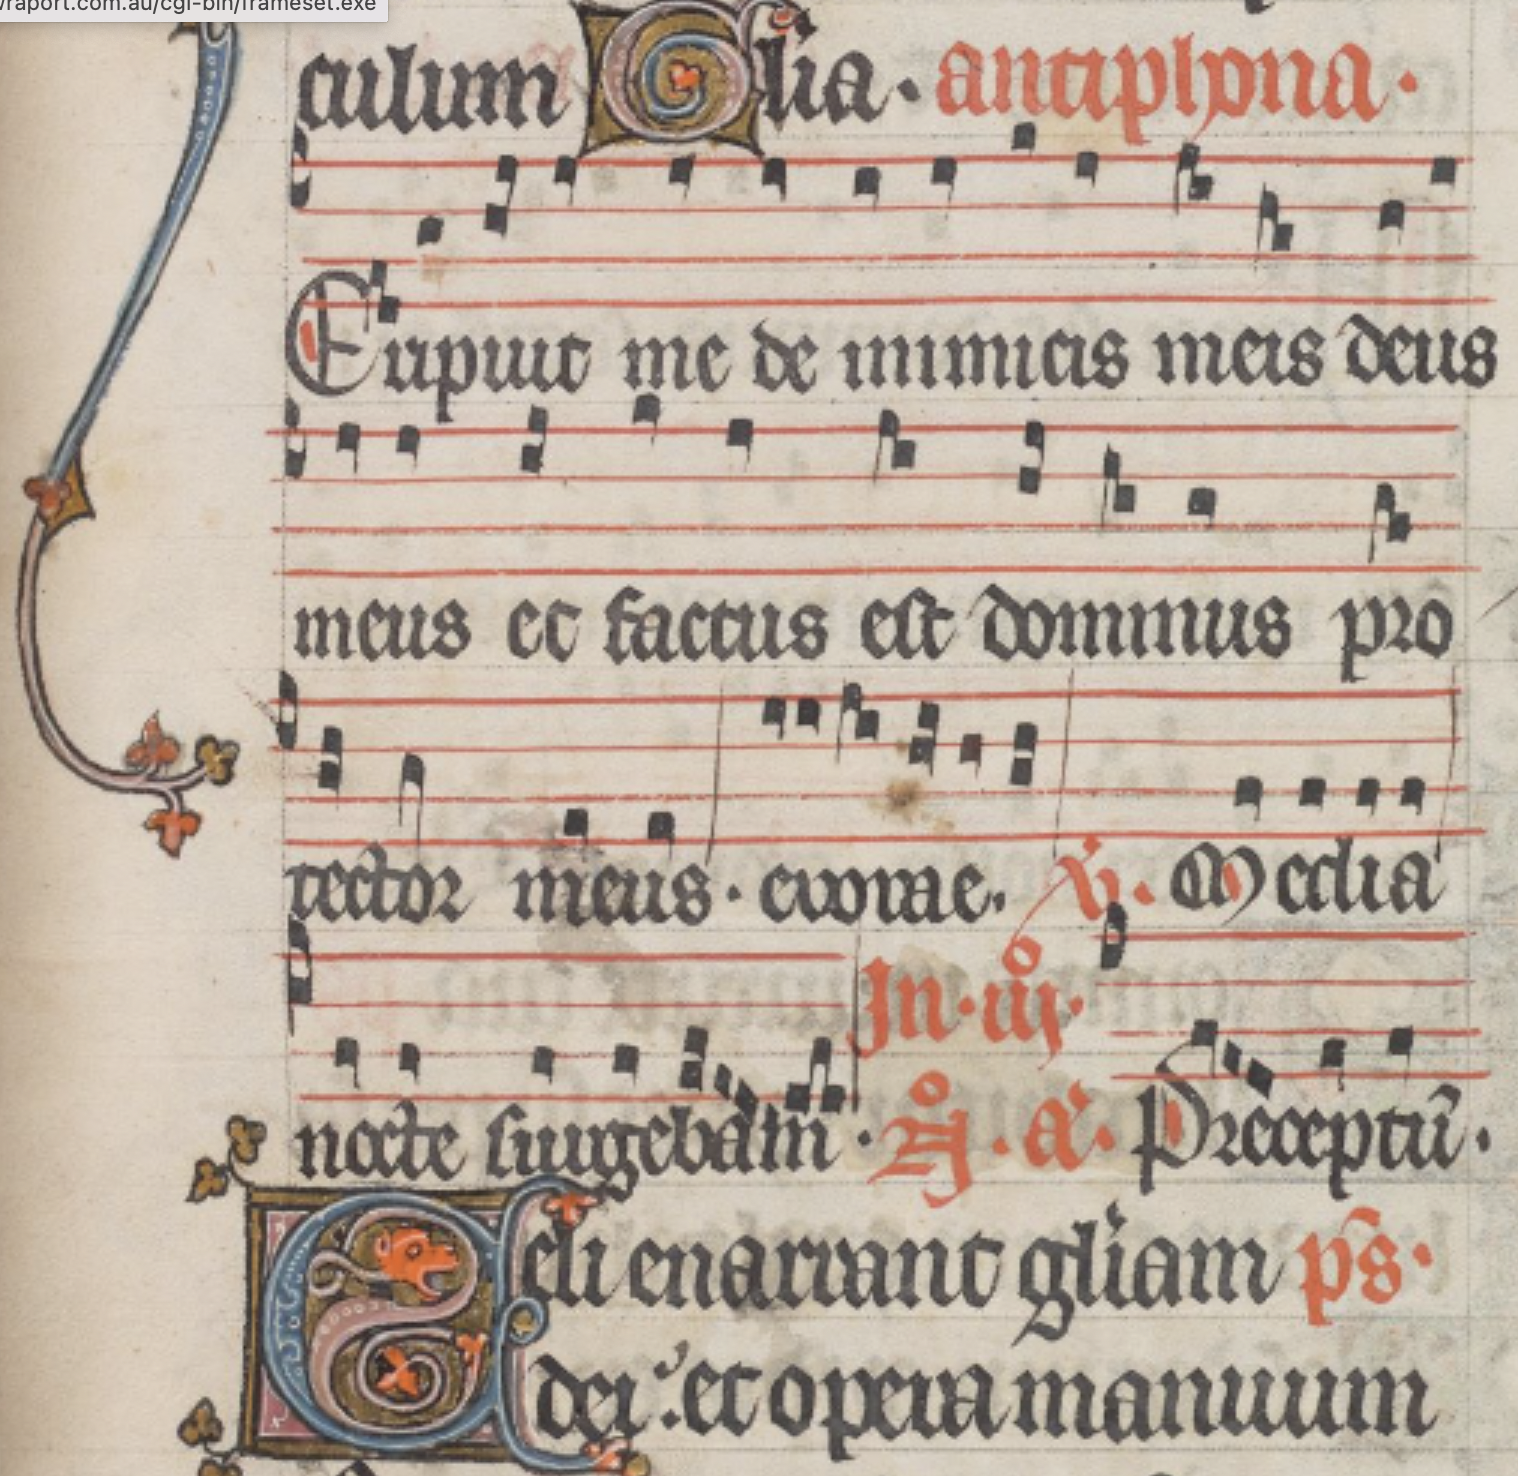 vraport.com.au/cgi-bin/frameset.exe
culum Glia. antiphona.
Eripuit me de inimicis meis deus
meus et factus est dominus pro
tector meus. evovae. V. Media
nocte surgebam. In. iij.
Preceptū.
Celi enarrant gliam ps.
dei: et opera manuum